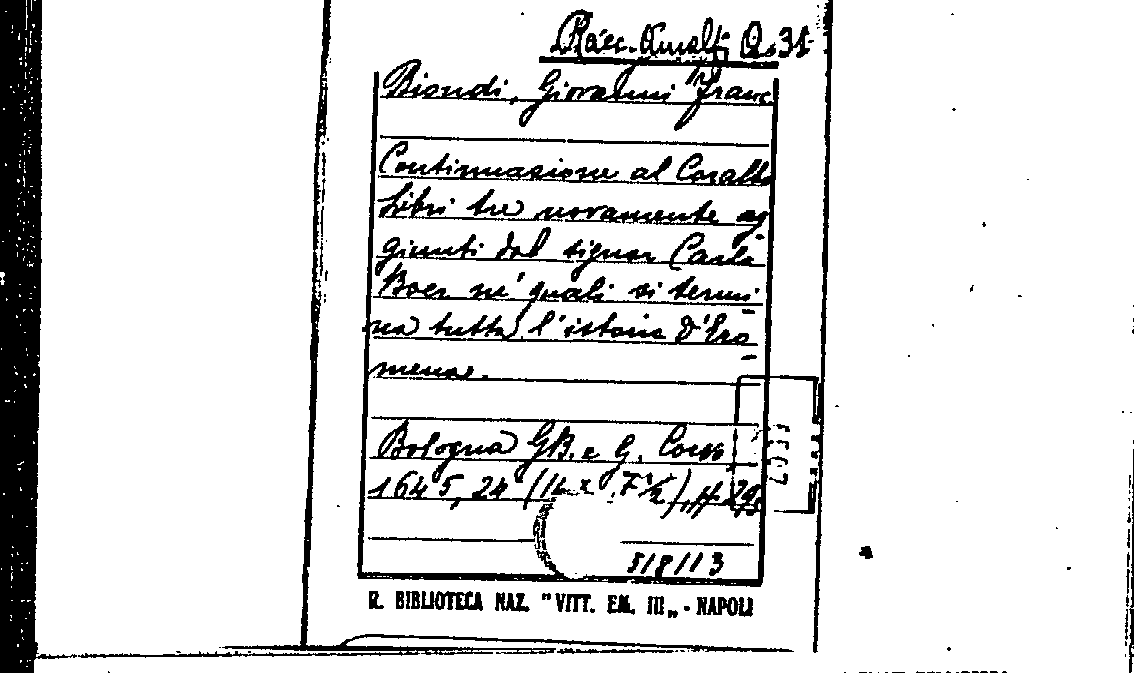 Racc. Amalfi Q. 31
Biondi, Giovanni Franc
Continuazione al Coralbo
Libri tre novamente ag
giunti dal signor Carlo
Boer ne' quali si termi
na tutta l'istoria d'Ero
mena.
Bologna GB. e G. Corvo
1645, 24 (14 x 7½), pp. 295
518113
R. BIBLIOTECA NAZ. "VITT. EM. III„ - NAPOLI